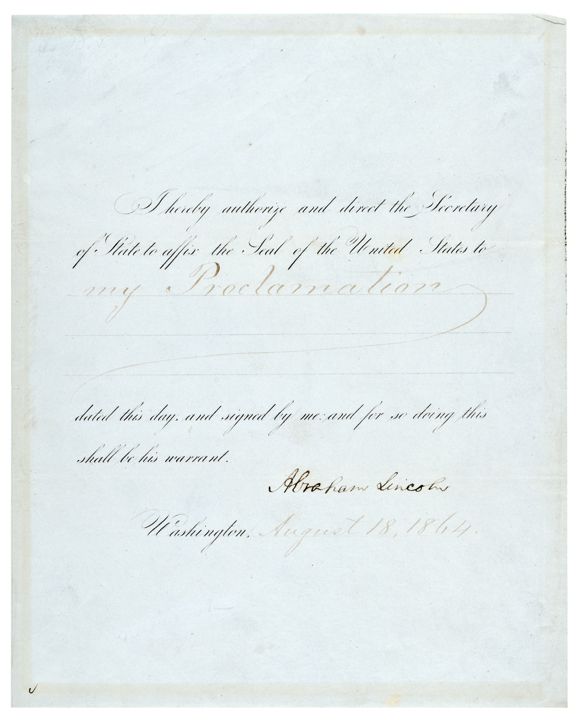 I hereby authorize and direct the Secretary
of State to affix the Seal of the United States to
my Proclamation
dated this day, and signed by me: and for so doing this
shall be his warrant.
Abraham Lincoln
Washington, August 18, 1864.